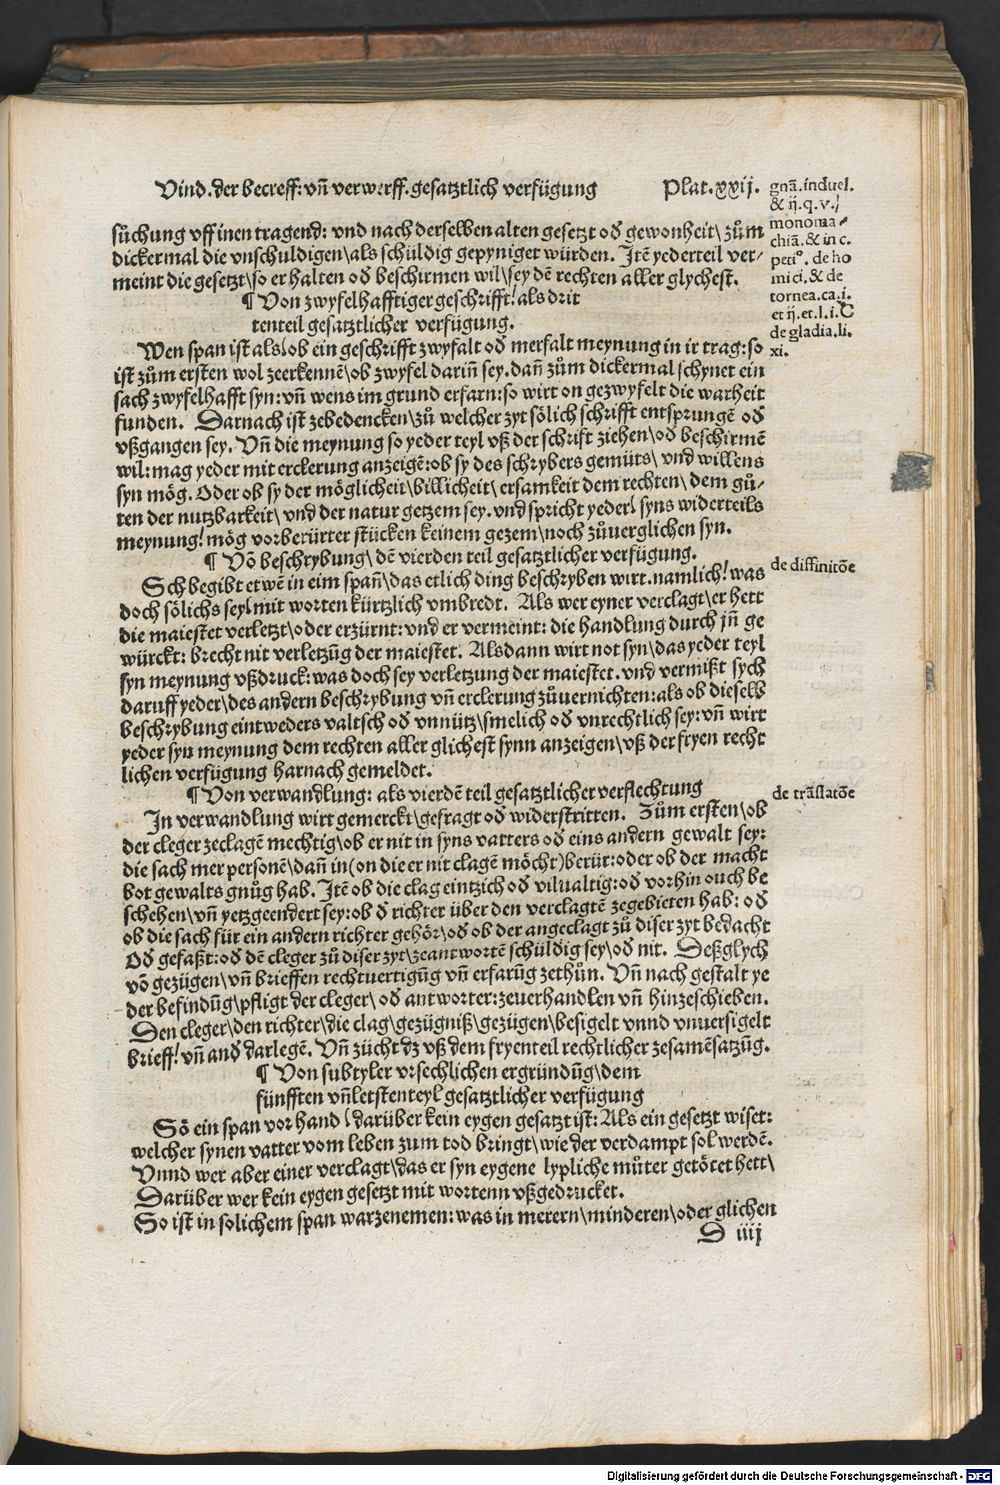 Vind. der becreff: vñ verwerff. gesatztlich verfügung Plat. xxij.
sůchung vff inen tragend: vnd nach derselben alten gesetzt od gewonheit\ zům
dickermal die vnschuldigen\ als schüldig gepyniget würden. Itē yederteil ver⸗
meint die gesetzt\ so er halten od beschirmen wil\ sey dē rechten aller glychest.
¶ Von zwyfelhafftiger geschrifft! als drit
tenteil gesatztlicher verfügung.
Wen span ist als\ ob ein geschrifft zwyfalt od merfalt meynung in ir trag: so
ist zům ersten wol zeerkennē\ ob zwyfel dariñ sey. dañ zům dickermal schynet ein
sach zwyfelhafft syn: vñ wens im grund erfarn: so wirt on gezwyfelt die warheit
funden. Darnach ist zebedencken\ zů welcher zyt sölich schrifft entsprungē od
vßgangen sey. Vñ die meynung so yeder teyl vß der schrift ziehen\ od beschirmē
wil: mag yeder mit erclerung anzeigē: ob sy des schrybers gemüts\ vnd willens
syn mög. Oder ob sy der möglicheit\ billicheit\ ersamkeit dem rechten\ dem gů⸗
ten der nutzbarkeit\ vnd der natur getzem sey. vnd spricht yeder\ syns widerteils
meynung! mög vorberürter stücken keinem gezem\ noch zůuerglichen syn.
¶ Võ beschrybung\ dē vierden teil gesatztlicher verfügung.
Sch begibt etwē in eim spañ\ das etlich ding beschryben wirt. namlich! was
doch sölichs sey\ mit worten kürtzlich vmbredt. Als wer eyner verclagt\ er hett
die maiestet verletzt\ oder erzürnt: vnd er vermeint: die handlung durch jñ ge
würckt: brecht nit verletzũg der maiestet. Alsdann wirt not syn\ das yeder teyl
syn meynung vßdruck: was doch sey verletzung der maiestet. vnd vermißt sych
daruff yeder\ des andern beschrybung vñ erclerung zůuernichten: als ob dieselb
beschrybung eintweders valtsch od vnnütz\ smelich od vnrechtlich sey: vñ wirt
yeder syn meynung dem rechten aller glichest synn anzeigen\ vß der fryen recht
lichen verfügung harnach gemeldet.
¶ Von verwandlung: als vierdē teil gesatztlicher verflechtung
In verwandlung wirt gemerckt\ gefragt od widerstritten. Zům ersten\ ob
der cleger zeclagē mechtig\ ob er nit in syns vatters od eins andern gewalt sey:
die sach mer personē\ dañ in (on die er nit clagē möcht) berür: oder ob der macht
bot gewalts gnůg hab. Itē ob die clag eintzich od viluальtig: od vorhin ouch be
schehen\ vñ yetz geendert sey: ob d richter über den verclagtē zegebieten hab: od
ob die sach für ein andern richter gehör\ od ob der angeclagt zů diser zyt bedacht
Od gefaßt: od dē cleger zů diser zyt\ zeantwortē schüldig sey\ od nit. Deßglych
võ gezügen\ vñ brieffen rechtuertigũg vñ erfarũg zethůn. Vñ nach gestalt ye
der befindũg\ pfligt der cleger\ od antworter: zeuerhandlen vñ hinzeschieben.
Den cleger\ den richter\ die clag\ gezügniß\ gezügen\ besigelt vnnd vnuersigelt
brieff! vñ and darlegē. Vñ zücht dz vß dem fryenteil rechtlicher zesamēsatzũg.
¶ Von subtyler vrsechlichen ergründũg\ dem
fünfften vñ letstenteyl gesatztlicher verfügung
Sö ein span vorhand\ darüber kein eygen gesatz ist: Als ein gesetzt wiset:
welcher synen vatter vom leben zum tod bringt\ wie der verdampt sol werdē.
Vnnd wer aber einer verclagt\ das er syn eygene lypliche můter getötet hett\
Darüber wer kein eygen gesetzt mit wortenn vßgedrucket.
So ist in solichem span warzenemen: was in merern\ minderen\ oder glichen
D iiij
gnã. in duel.
& ij. q. v. /
monoma⸗
chiã. & in c.
peti°. de ho
mici. & de
tornea. ca. i.
et ij. et. l. i. C
de gladia. li.
xi.
de diffinitōe
de trãslatōe
Digitalisierung gefördert durch die Deutsche Forschungsgemeinschaft - DFG